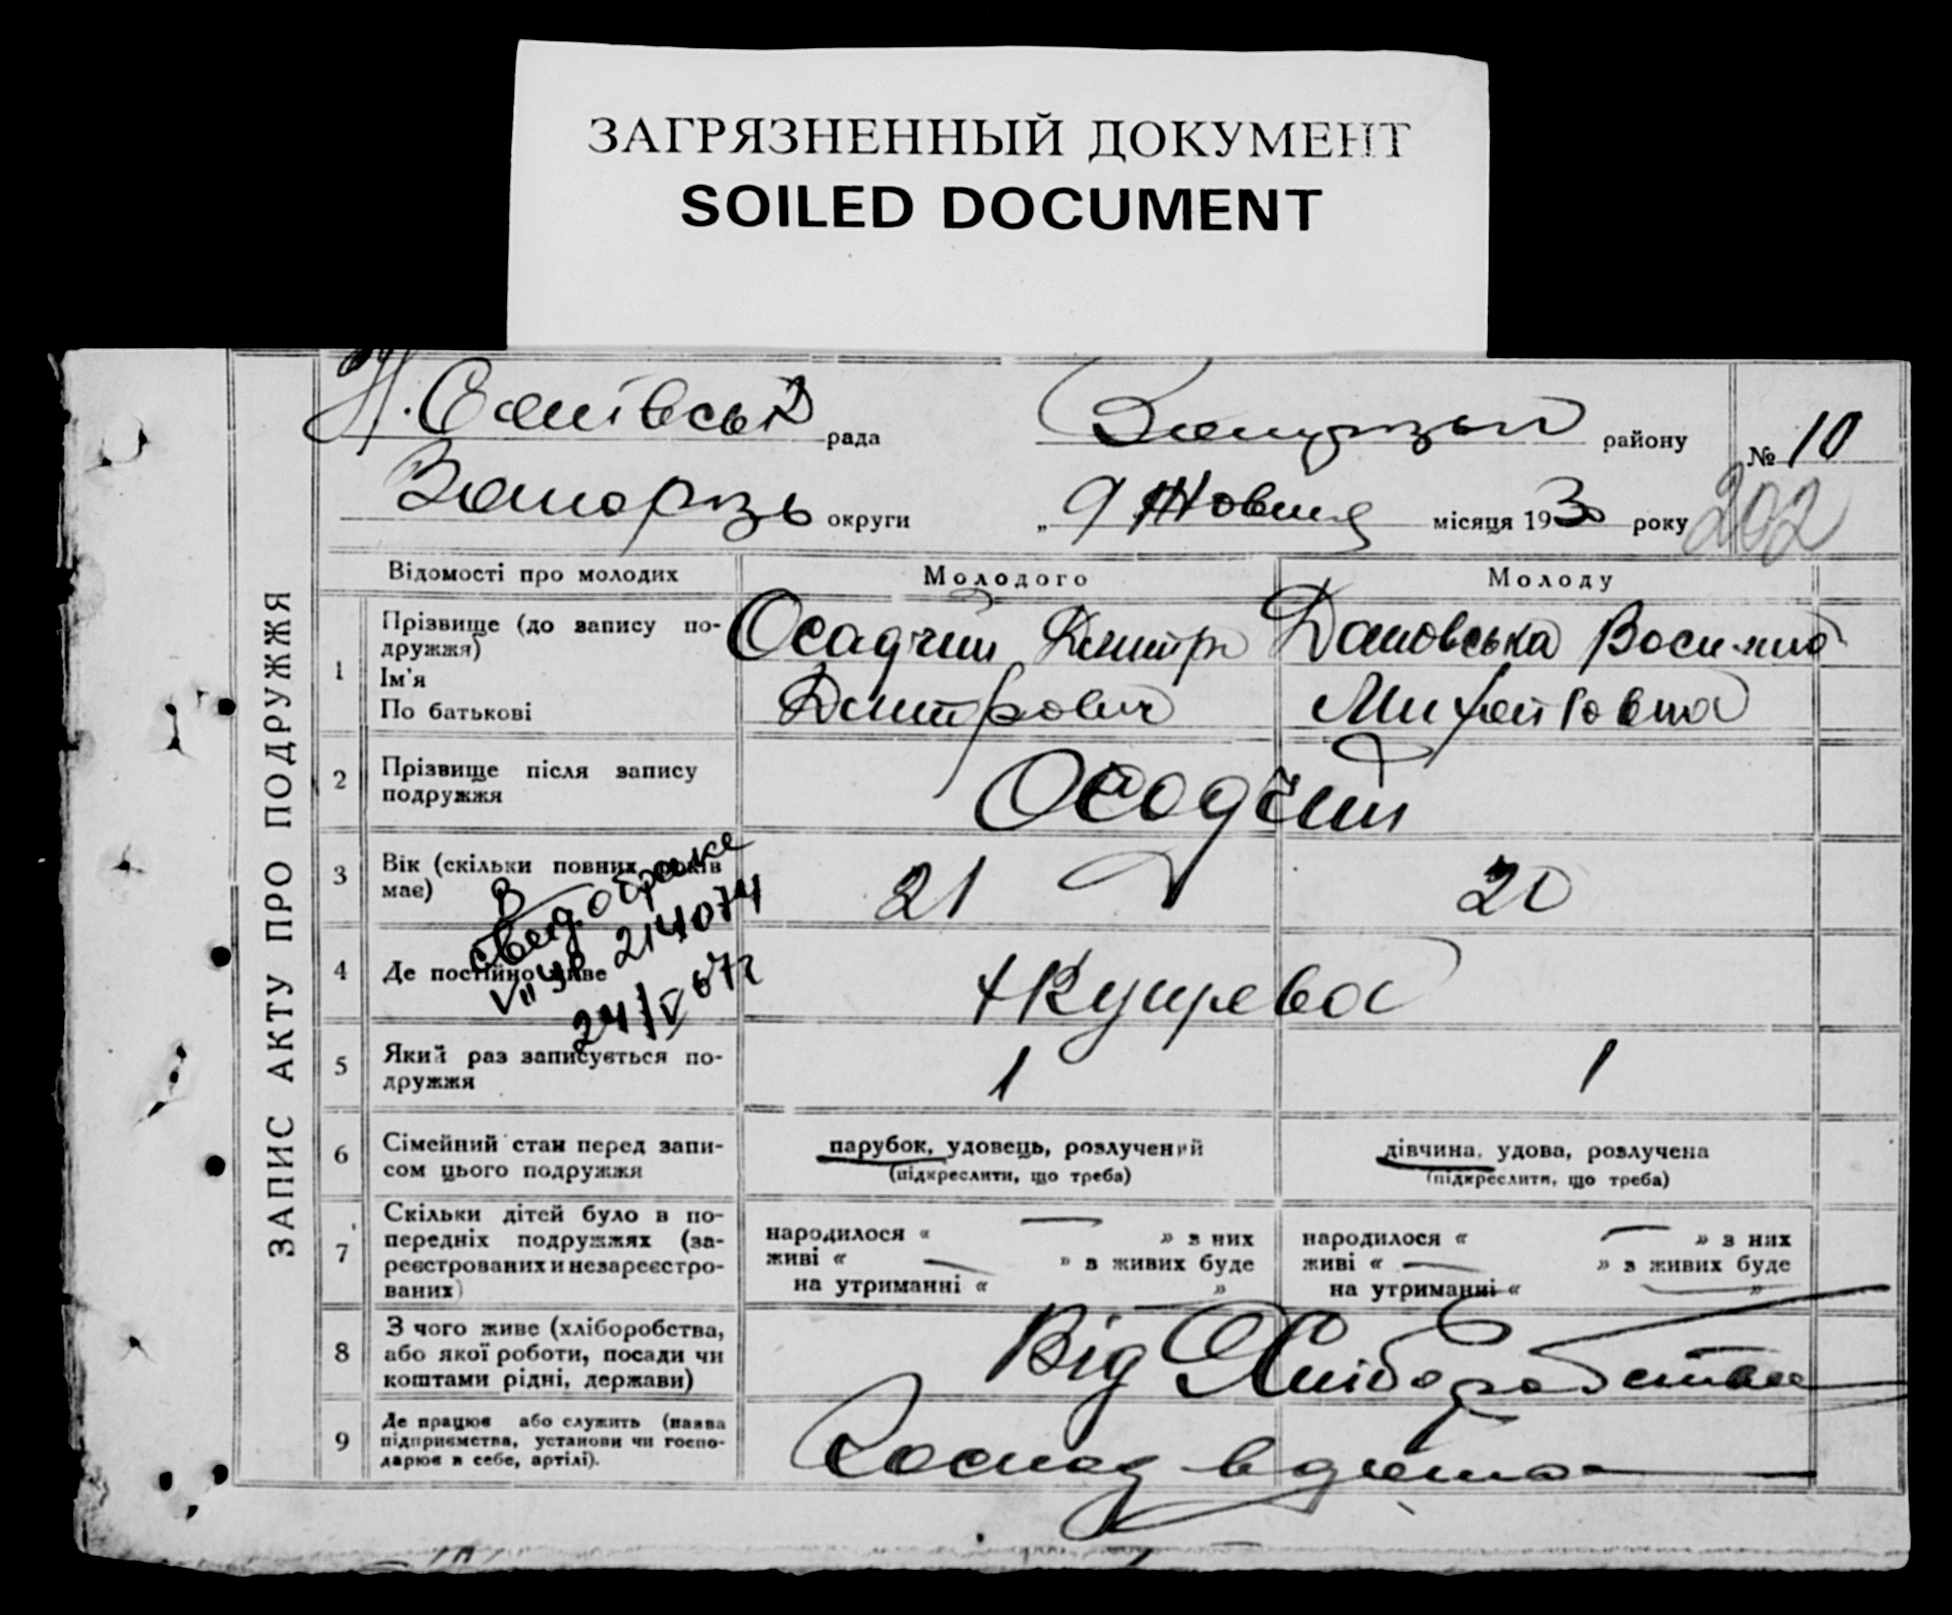 ЗАГРЯЗНЕННЫЙ ДОКУМЕНТ
SOILED DOCUMENT
рада
району
№ 10
округи
„ 9 Жовтня місяця 1930 року
202
ЗАПИС АКТУ ПРО ПОДРУЖЖЯ
Відомості про молодих
Молодого
Молоду
1
Прізвище (до запису по-
дружжя)
Ім'я
По батькові
Осадчий Дмитро
Дмитрович
Михайловна
2
Прізвище після запису
подружжя
Осадчий
3
Вік (скільки повних років
має)
21
20
В
свид. о браке
214074
4
Де постійно живе
24/V 67г
5
Який раз записується по-
дружжя
1
1
6
Сімейний стан перед запи-
сом цього подружжя
парубок, удовець, розлучений
(підкреслити, що треба)
дівчина, удова, розлучена
(підкреслити, що треба)
7
Скільки дітей було в по-
передніх подружжях (за-
реєстрованих и незареєстро-
ваних)
народилося « — » з них
живі « — » з живих буде
на утриманні « — »
народилося « — » з них
живі « — » з живих буде
на утриманні « — »
8
З чого живе (хліборобства,
або якої роботи, посади чи
коштами рідні, держави)
Від Хліборобства
9
Де працює або служить (назва
підприємства, установи чи госпо-
дарює в себе, артілі).